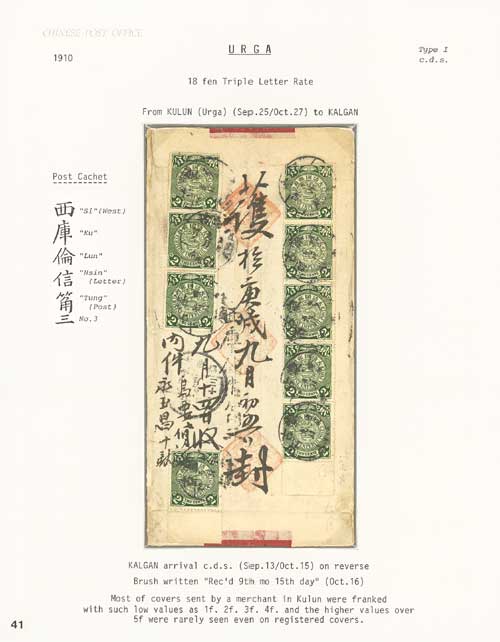 CHINESE POST OFFICE
1910
URGA
Type I
c.d.s.
18 fen Triple Letter Rate
From KULUN (Urga) (Sep.25/Oct.27) to KALGAN
Post Cachet
西 "Si"(West)
庫 "Ku"
倫 "Lun"
信 "Hsin" (Letter)
筩 "Tung" (Post)
三 No.3
於庚戌九月 封
九月十 收
内件
KALGAN arrival c.d.s. (Sep.13/Oct.15) on reverse
Brush written "Rec'd 9th mo 15th day" (Oct.16)
Most of covers sent by a merchant in Kulun were franked
with such low values as 1f. 2f. 3f. 4f. and the higher values over
5f were rarely seen even on registered covers.
41